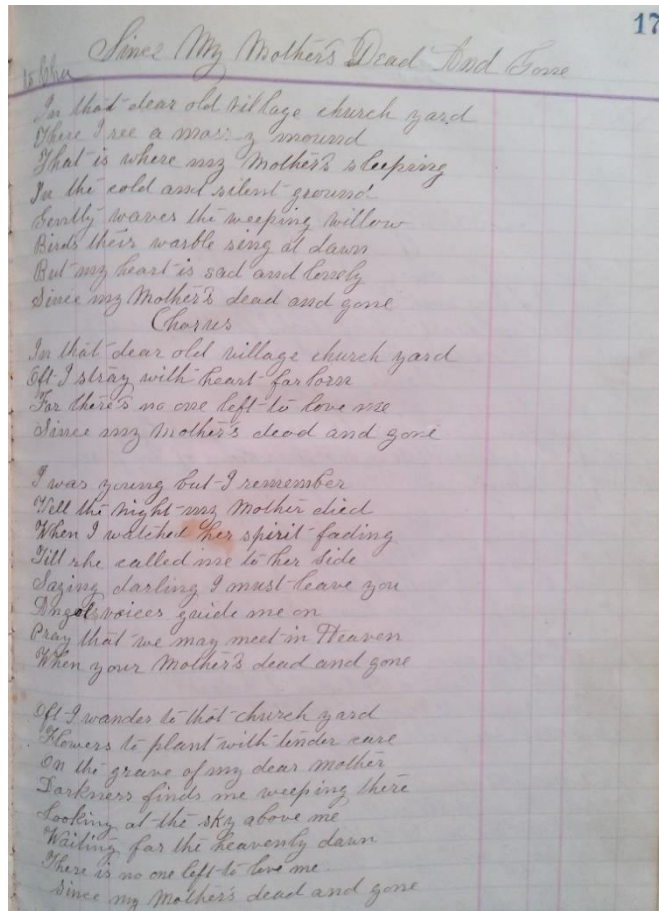 17
Since My Mother's Dead And Gone
In that dear old village church yard
There I see a mossy mound
That is where my Mother's sleeping
In the cold and silent ground
Gently waves the weeping willow
Birds their warble sing at dawn
But my heart is sad and lonely
Since my Mother's dead and gone
Chorus
In that dear old village church yard
Oft I stray with heart forlorn
For there's no one left to love me
Since my Mother's dead and gone
I was young but I remember
Well the night my Mother died
When I watched her spirit fading
Till she called me to her side
Saying darling I must leave you
Angels voices guide me on
Pray that we may meet in Heaven
When your Mother's dead and gone
Oft I wander to that church yard
Flowers to plant with tender care
On the grave of my dear Mother
Darkness finds me weeping there
Looking at the sky above me
Waiting for the heavenly dawn
There is no one left to love me
Since my Mother's dead and gone